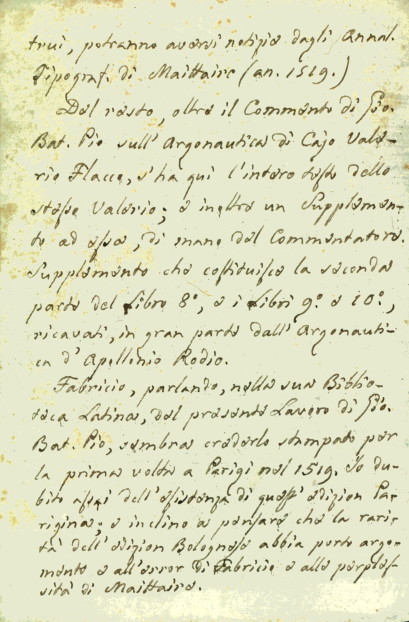 trui, potranno aversi notizie dagli Annal.
Tipograf. di Maittaire (an. 1519.)
Del resto, oltre il Commento di Gio.
Bat. Pio sull' Argonautica di Cajo Vale-
rio Flacco, s'ha quì l'intero testo dello
stesso Valerio; e inoltre un Supplemen-
to ad esso, di mano del Commentatore.
Supplemento che costituisce la seconda
parte del Libro 8º, e i Libri 9º. e 10º.,
ricavati, in gran parte dall' Argonauti-
ca d' Apollonio Rodio.
Fabricio, parlando, nella sua Biblio-
teca Latina, del presente Lavoro di Gio.
Bat. Pio, sembra crederlo stampato per
la prima volta a Parigi nel 1519. Io du-
bito assai dell' esistenza di quest' edizion Pa-
rigina; e inclino a pensare che la rari-
tà dell' edizion Bolognese abbia porto argo-
mento e all' error di Fabricio e alle perples-
sità di Maittaire.